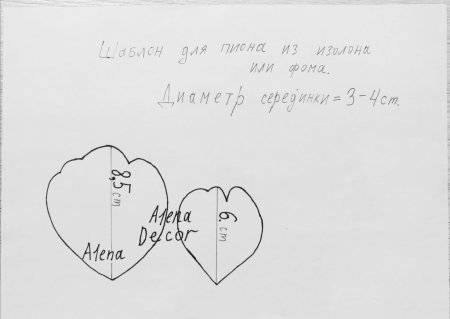 Шаблон для пиона из изолона
или фома.
Диаметр серединки = 3-4cm.
8,5 cm
Alena
Alena
Decor
6 cm